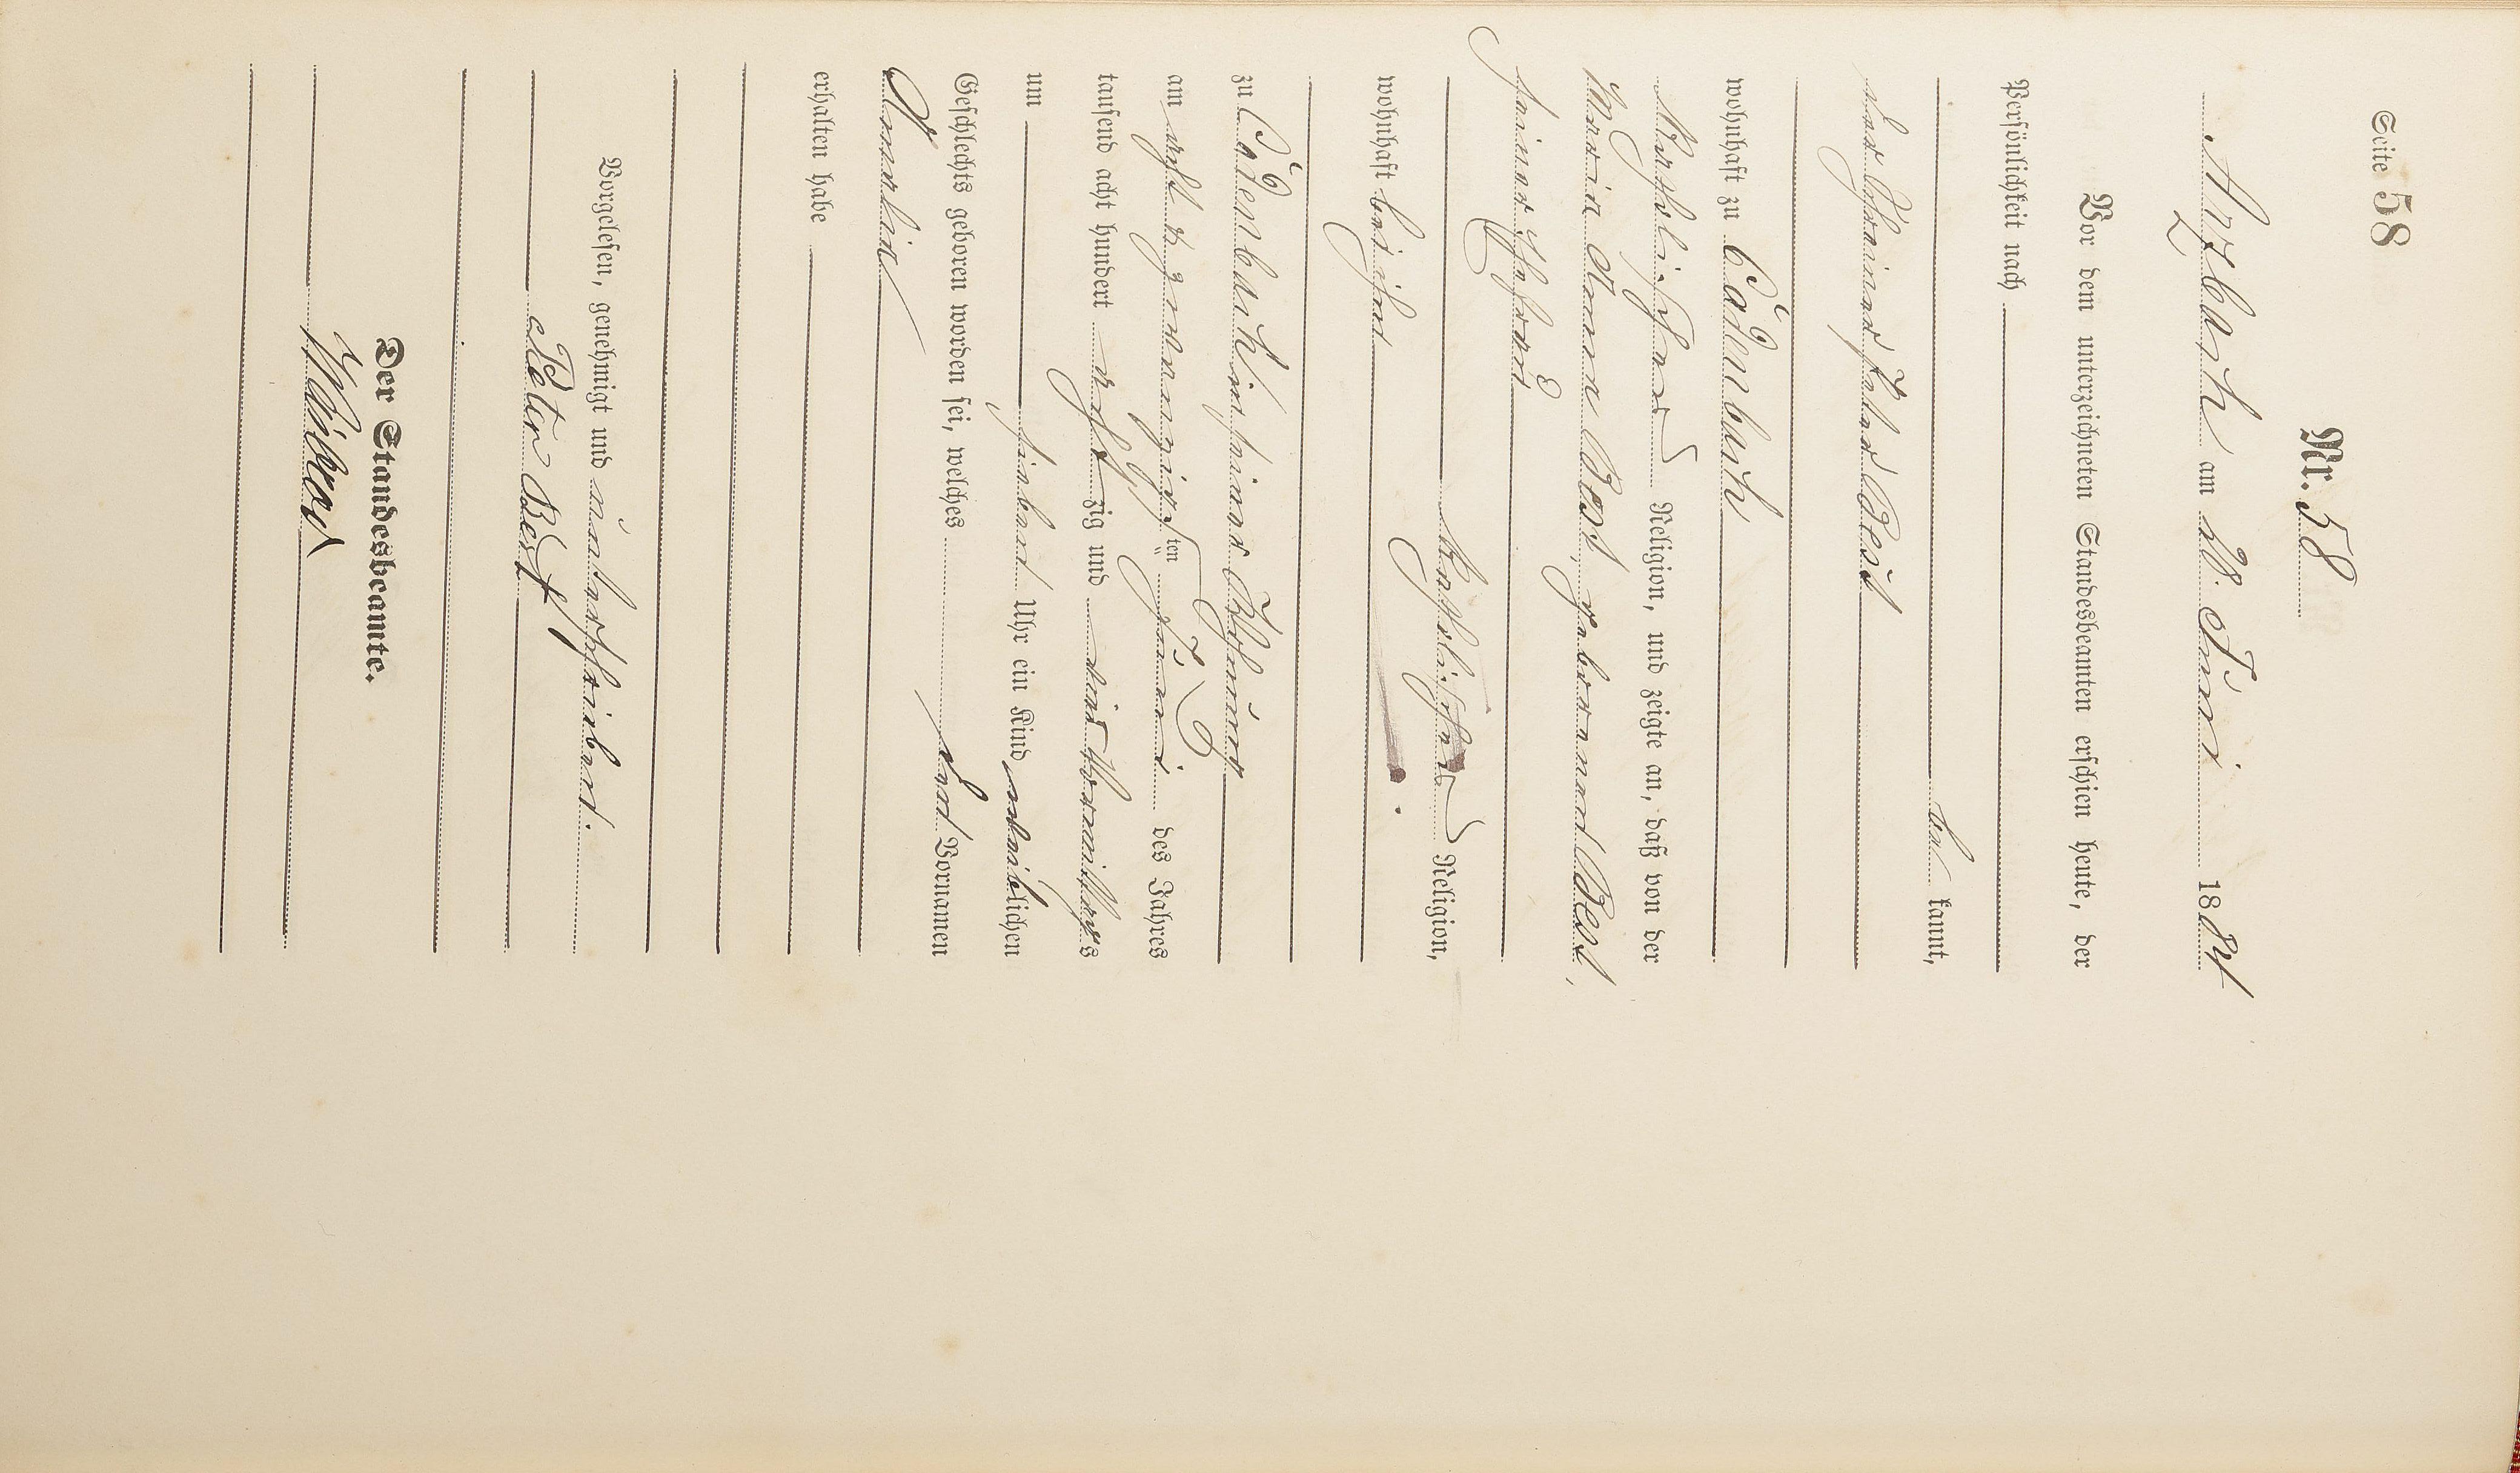 Seite 58
Nr. 58
Arzbach am 28. Juni 1884
Vor dem unterzeichneten Standesbeamten erschien heute, der
Persönlichkeit nach
be kannt,
der Schreiner Peter Best
wohnhaft zu Cadenbach
Katholischer Religion, und zeigte an, daß von der
Maria Anna Best, geborened Best,
seiner Ehefrau
Katholischer Religion,
wohnhaft bei ihm
zu Cadenbach in seiner Wohnung
am acht & zwanzigsten ten Juni des Jahres
tausend acht hundert acht zig und vier Vormittags
um sieben Uhr ein Kind weiblichen
Geschlechts geboren worden sei, welches den Vornamen
Amalia
erhalten habe
Vorgelesen, genehmigt und unterschrieben.
Peter Best
Der Standesbeamte.